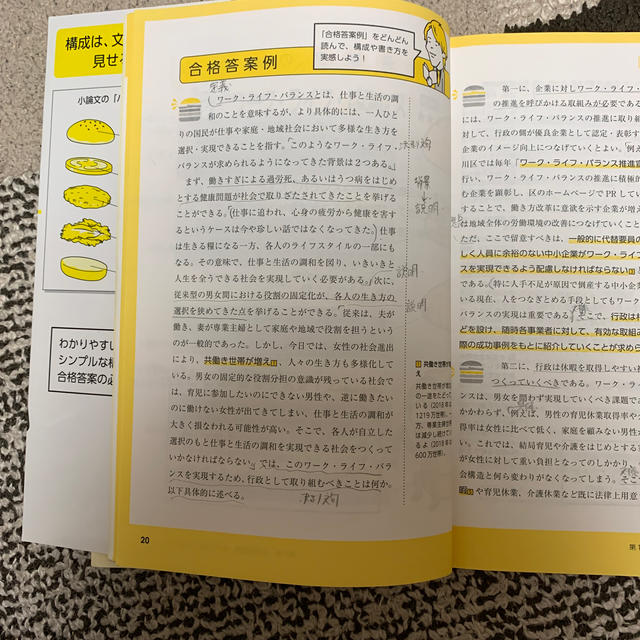 構成は、文
見せ
小論文の「バ
わかりやすい
シンプルな構
合格答案の必
合格答案例
「合格答案例」をどんどん
読んで、構成や書き方を
実感しよう！
定義
ワーク・ライフ・バランスとは、仕事と生活の調
和のことを意味するが、より具体的には、一人ひと
りの国民が仕事や家庭・地域社会において多様な生き方を
選択・実現できることを指す。このようなワーク・ライフ・
バランスが求められるようになってきた背景は２つある。
まず、働きすぎによる過労死、あるいはうつ病をはじめ
とする健康問題が社会で取りざたされてきたことを挙げる
ことができる。仕事に追われ、心身の疲労から健康を害す
るというケースは今や珍しい話ではなくなってきた。仕事
は生きる糧になる一方、各人のライフスタイルの一部にも
なる。その意味で、仕事と生活の調和を図り、いきいきと
人生を全うできる社会を実現していく必要がある。次に、
従来型の男女間における役割の固定化が、各人の生き方の
選択を狭めてきた点を挙げることができる。従来は、夫が
働き、妻が専業主婦として家庭や地域で役割を担うという
のが一般的であった。しかし、今日では、女性の社会進出
により、共働き世帯が増え、人々の生き方も多様化してい
る。男女の固定的な役割分担の意識が残っている社会で
は、育児に参加したいのにできない男性や、逆に働きたい
のに働けない女性が出てきてしまい、仕事と生活の調和が
大きく損なわれる可能性が高い。そこで、各人が自立した
選択のもと仕事と生活の調和を実現できる社会をつくって
いかなければならない。では、このワーク・ライフ・バラ
ンスを実現するため、行政として取り組むべきことは何か。
以下具体的に述べる。
背景
説明
説明
説明
共働き世帯が増
え
共働き世帯数は増
の一途をたどって
いる（2018年は
1219万世帯）。
方、専業主婦世帯
は減少し続けて
るよ（2018年
600万世帯）。
20
第一に、企業に対しワーク・ライフ・
の推進を呼びかける取組みが必要である
には、ワーク・ライフ・バランスの推進に取り組
対して、行政の側が優良企業として認定・表彰す
企業のイメージ向上につなげていくとよい。例え
川区では毎年「ワーク・ライフ・バランス推進宣
行い、ワーク・ライフ・バランスの推進に積極的
む企業を顕彰し、区のホームページでPRして
することで、働き方改革に意欲を示す企業が増え
は地域全体の労働環境の改善につなげていくこと
ただ、ここで留意すべきは、一般的に代替要員の
しく人員に余裕のない中小企業がワーク・ライフ
スを実現できるよう配慮しなければならない
である。（特に人手不足が原因で倒産する中小企
いる現在、人をつなぎとめる手段としてもワーク
バランスの実現は重要である。そこで、行政は
どを設け、随時各事業者に対して、有効な取組み
際の成功事例をもとに紹介していくことが求め
第二に、行政は休暇を取得しやすい
つくっていくべきである。ワーク・ラ
ンスは、男女を問わず実現していくべき課題であ
かかわらず、例えば、男性の育児休業取得率や
得率は女性に比べて低く、家庭を顧みない男性
い。これでは、結局育児や介護をはじめとする
が女性に対して重い負担となってのしかかり、
会構造と何ら変わりがなくなってしまう。そこ
や育児休業、介護休業など既に法律上用意
第1